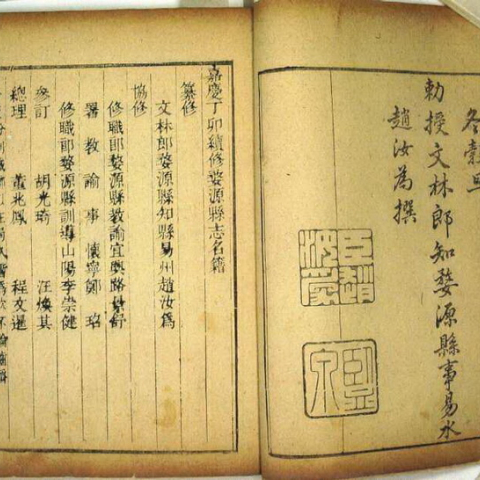 冬穀旦
勅授文林郎知婺源縣事易水
趙汝為撰
嘉慶丁卯續修婺源縣志名籍
纂修
文林郎婺源縣知縣易州趙汝為
協修
修職郎婺源縣教諭宜興路景舒
署教諭事懷寧鄭珞
修職郎婺源縣訓導山陽李崇健
參訂
胡光琦 汪煥其
總理
董兆鳳 程文選